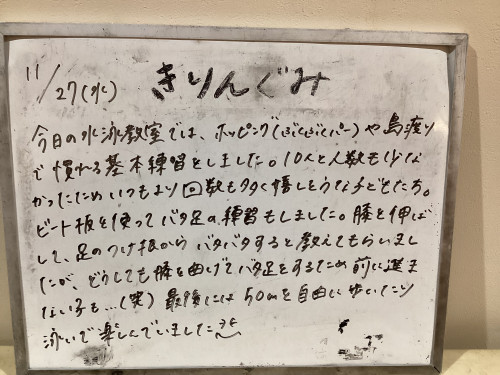 11/27(水) きりんぐみ
今日の水泳教室では、ホッピング(ぶくぶくパー)や島渡り
で慣れる基本練習をしました。10人と人数も少な
かったためいつもより回数も多く嬉しそうな子どもたち。
ビート板を使ってバタ足の練習もしました。膝を伸ば
して、足のつけ根からバタバタすると教えてもらいまし
たが、どうしても膝を曲げてバタ足をするため前に進ま
ない子も…(笑) 最後には50mを自由に歩いたり
泳いで楽しんでいました